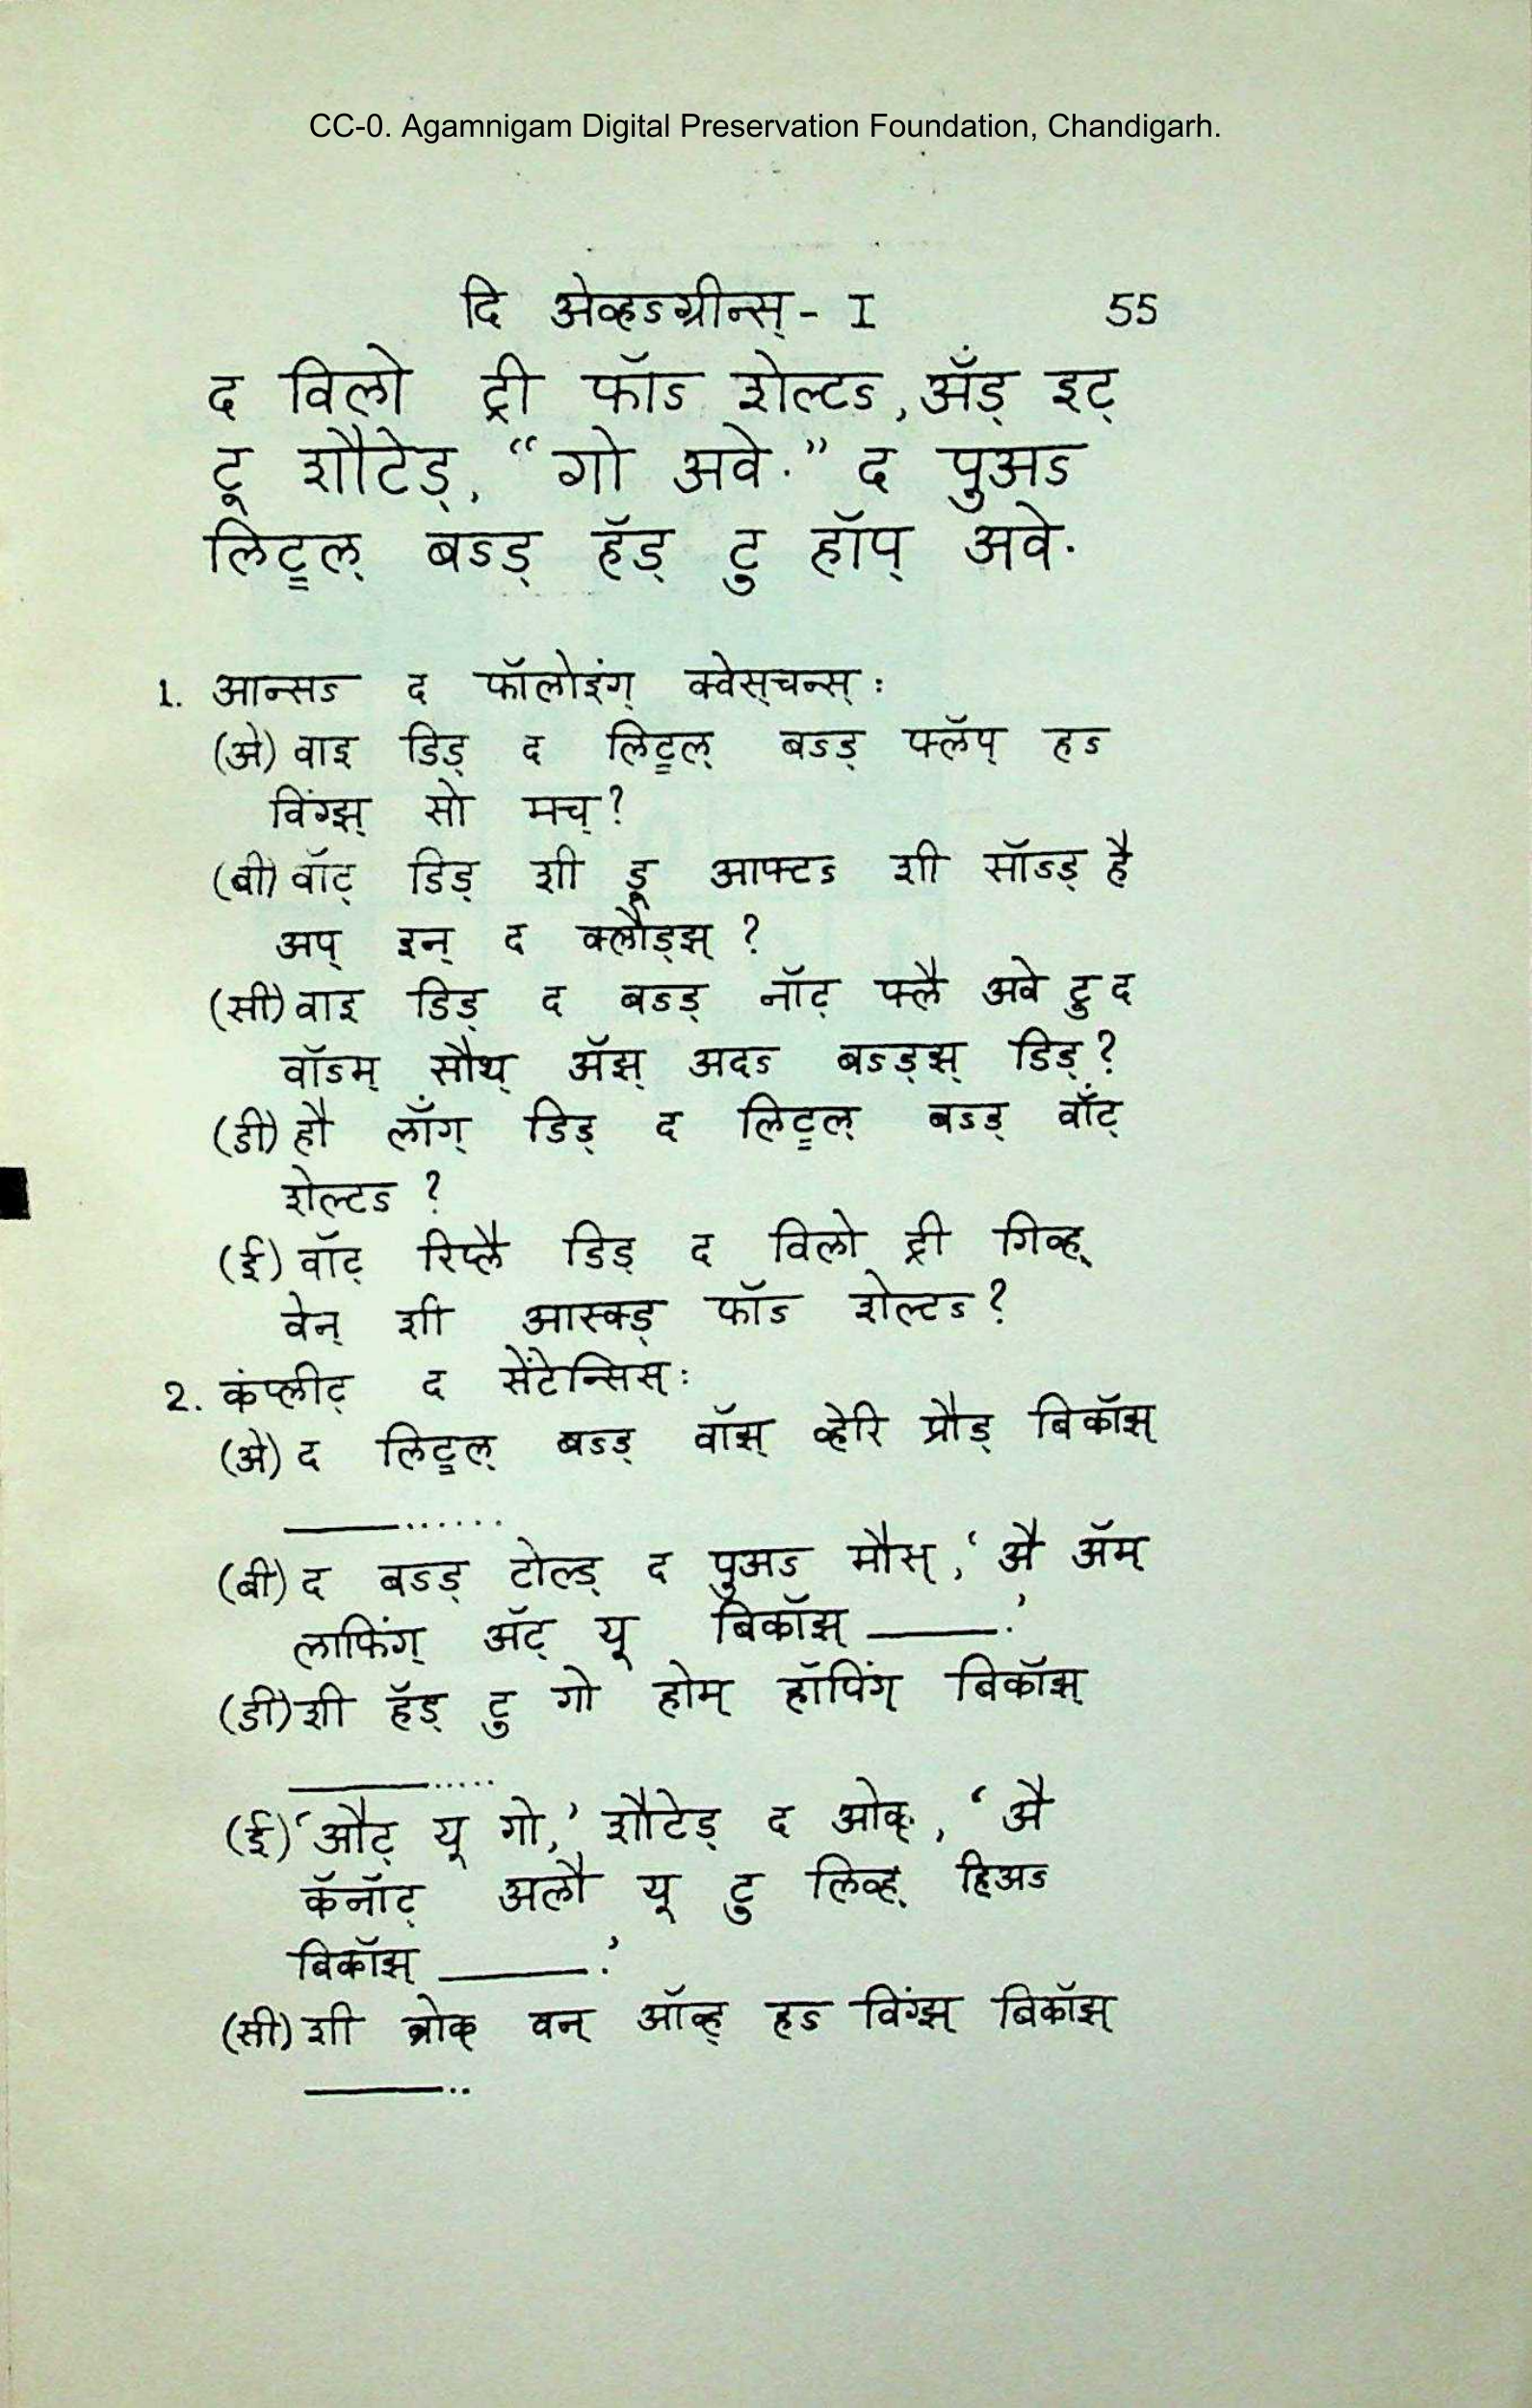 CC-0. Agamnigam Digital Preservation Foundation, Chandigarh.
दि अेव्हऽग्रीन्स् - I 55
द विलो ट्री फॉऽ शेल्टऽ, अँड् इट्
टू शौटेड्, “गो अवे.” द पुअऽ
लिट्ल् बऽड् हॅड् टु हॉप् अवे.
1. आन्सऽ द फॉलोइंग् क्वेस्चन्स् :
(अे) वाइ डिड् द लिट्ल् बऽड् फ्लॅप् हऽ
विंग्झ् सो मच् ?
(बी) वॉट् डिड् शी डू आफ्टऽ शी सॉऽड् है
अप् इन् द क्लौड्झ् ?
(सी) वाइ डिड् द बऽड् नॉट् फ्लै अवे टु द
वॉऽम् सौथ् अॅझ् अदऽ बऽड्झ् डिड् ?
(डी) हौ लाँग् डिड् द लिट्ल् बऽड् वाँट्
शेल्टऽ ?
(ई) वॉट् रिप्लै डिड् द विलो ट्री गिव्ह्
वेन् शी आस्क्ड् फॉऽ शेल्टऽ ?
2. कंप्लीट् द सेंटेन्सिस् :
(अे) द लिट्ल् बऽड् वॉझ् व्हेरि प्रौड् बिकॉझ्
———......
(बी) द बऽड् टोल्ड् द पुअऽ मौस्, ‘अै अॅम्
लाफिंग् अॅट् यू बिकॉझ् ———.’
(डी) शी हॅड् टु गो होम् हॉपिंग् बिकॉझ्
———.....
(ई) ‘औट् यू गो,’ शौटेड् द ओक्, ‘अै
कॅनॉट् अलौ यू टु लिव्ह् हिअऽ
बिकॉझ् ———.’
(सी) शी ब्रोक् वन् ऑव्ह् हऽ विंग्झ् बिकॉझ्
———..